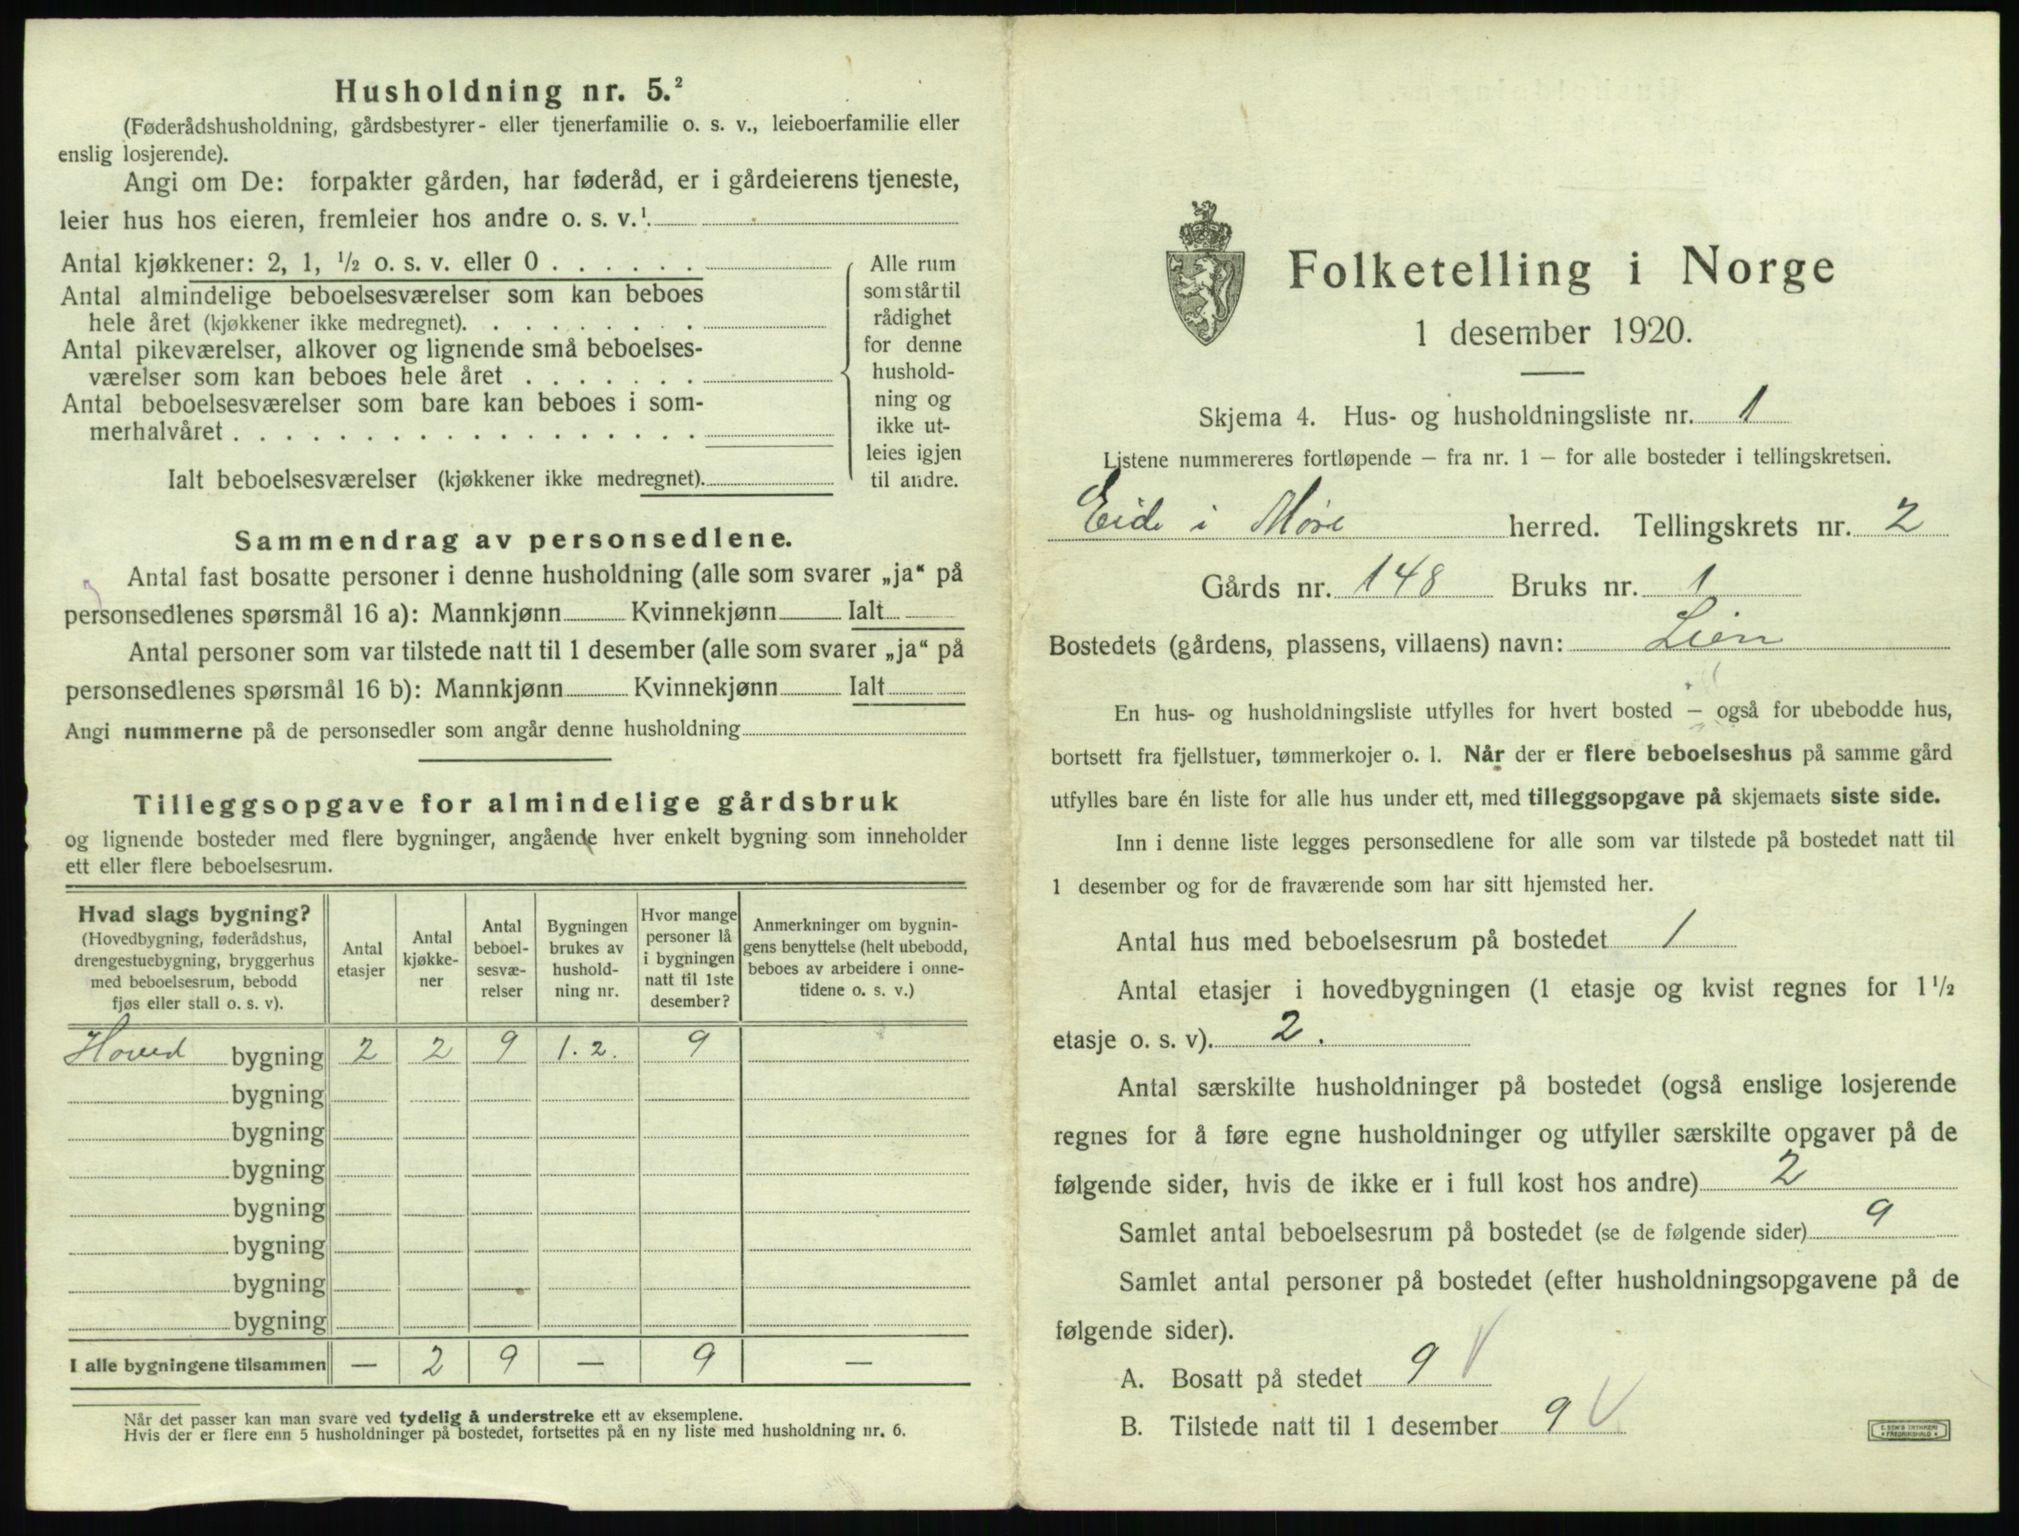 Husholdning nr. 5.²
(Føderådshusholdning, gårdsbestyrer- eller tjenerfamilie o. s. v., leieboerfamilie eller
enslig losjerende).
Angi om De: forpakter gården, har føderåd, er i gårdeierens tjeneste,
leier hus hos eieren, fremleier hos andre o. s. v.¹
Antal kjøkkener: 2, 1, ½ o. s. v. eller 0 . . . . . .
Antal almindelige beboelsesværelser som kan beboes
hele året (kjøkkener ikke medregnet). . . . . . . . .
Antal pikeværelser, alkover og lignende små beboelses-
værelser som kan beboes hele året . . . . . . .
Antal beboelsesværelser som bare kan beboes i som-
merhalvåret . . . . . . . . . . . . . . . . . .
Ialt beboelsesværelser (kjøkkener ikke medregnet).
Alle rum
som står til
rådighet
for denne
hushold-
ning og
ikke ut-
leies igjen
til andre.
Sammendrag av personsedlene.
Antal fast bosatte personer i denne husholdning (alle som svarer „ja“ på
personsedlenes spørsmål 16 a): Mannkjønn Kvinnekjønn Ialt
Antal personer som var tilstede natt til 1 desember (alle som svarer „ja“ på
personsedlenes spørsmål 16 b): Mannkjønn Kvinnekjønn Ialt
Angi nummerne på de personsedler som angår denne husholdning
Tilleggsopgave for almindelige gårdsbruk
og lignende bosteder med flere bygninger, angående hver enkelt bygning som inneholder
ett eller flere beboelsesrum.
Hvad slags bygning?
(Hovedbygning, føderådshus,
drengestuebygning, bryggerhus
med beboelsesrum, bebodd
fjøs eller stall o. s. v).
Antal
etasjer
Antal
kjøkke-
ner
Antal
beboel-
sesvæ-
relser
Bygningen
brukes av
hushold-
ning nr.
Hvor mange
personer lå
i bygningen
natt til 1ste
desember?
Anmerkninger om bygnin-
gens benyttelse (helt ubebodd,
beboes av arbeidere i onne-
tidene o. s. v.)
Hoved bygning 2 2 9 1. 2. 9
bygning
bygning
bygning
bygning
bygning
bygning
bygning
I alle bygningene tilsammen — 2 9 — 9 —
Når det passer kan man svare ved tydelig å understreke ett av eksemplene.
Hvis der er flere enn 5 husholdninger på bostedet, fortsettes på en ny liste med husholdning nr. 6.
Folketelling i Norge
1 desember 1920.
Skjema 4. Hus- og husholdningsliste nr. 1
Listene nummereres fortløpende – fra nr. 1 – for alle bosteder i tellingskretsen.
Eide i Møre herred. Tellingskrets nr. 2
Gårds nr. 148 Bruks nr. 1
Bostedets (gårdens, plassens, villaens) navn: Lien
En hus- og husholdningsliste utfylles for hvert bosted – også for ubebodde hus,
bortsett fra fjellstuer, tømmerkojer o. l. Når der er flere beboelseshus på samme gård
utfylles bare én liste for alle hus under ett, med tilleggsopgave på skjemaets siste side.
Inn i denne liste legges personsedlene for alle som var tilstede på bostedet natt til
1 desember og for de fraværende som har sitt hjemsted her.
Antal hus med beboelsesrum på bostedet 1
Antal etasjer i hovedbygningen (1 etasje og kvist regnes for 1½
etasje o. s. v). 2.
Antal særskilte husholdninger på bostedet (også enslige losjerende
regnes for å føre egne husholdninger og utfyller særskilte opgaver på de
følgende sider, hvis de ikke er i full kost hos andre) 2
Samlet antal beboelsesrum på bostedet (se de følgende sider) 9
Samlet antal personer på bostedet (efter husholdningsopgavene på de
følgende sider).
A. Bosatt på stedet 9
B. Tilstede natt til 1 desember 9